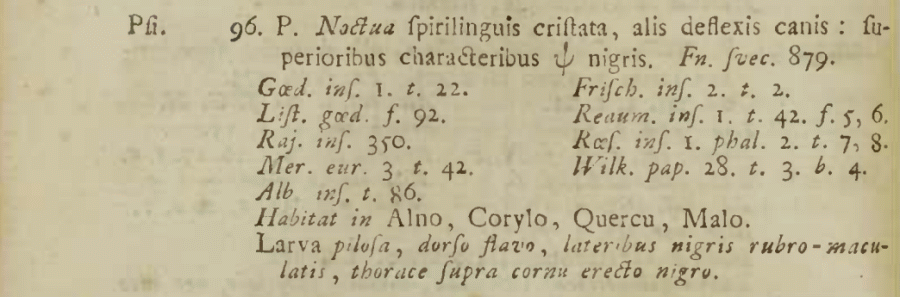 Pſi. 96. P. Noctua ſpirilinguis criſtata, alis deflexis canis : ſu-
perioribus characteribus ψ nigris. Fn. ſvec. 879.
Gœd. inſ. 1. t. 22. Friſch. inſ. 2. t. 2.
Liſt. gœd. f. 92. Reaum. inſ. 1. t. 42. f. 5, 6.
Raj. inſ. 350. Rœſ. inſ. 1. phal. 2. t. 7, 8.
Mer. eur. 3 t. 42. Wilk. pap. 28. t. 3. b. 4.
Alb. inſ. t. 86.
Habitat in Alno, Corylo, Quercu, Malo.
Larva piloſa, dorſo flavo, lateribus nigris rubro-macu-
latis, thorace ſupra cornu erecto nigro.